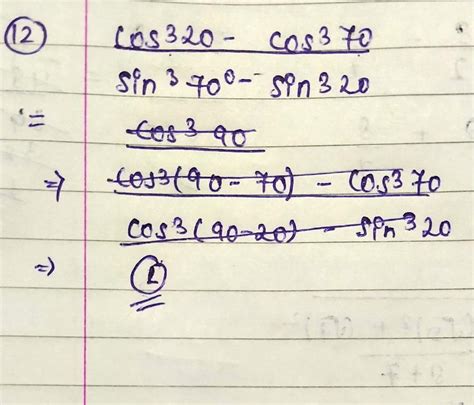 12 cos³20 - cos³70
sin³70⁰ - sin³20
= cos³90
⇒ cos³(90-70) - cos³70
cos³(90-20) - sin³20
⇒ 1